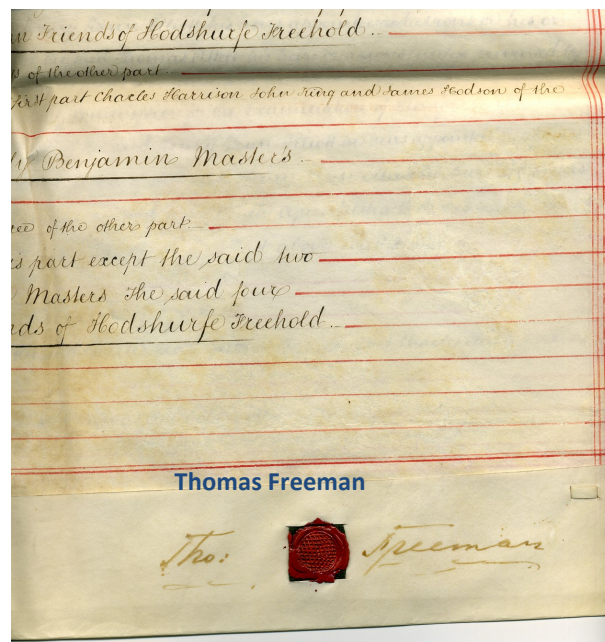 Friends of Hodshurfe Freehold
of the other part
First part Charles Harrison John King and James Hodson of the
Benjamin Masters
of the other part
part except the said two
Masters The said four
of Hodshurfe Freehold
Thomas Freeman
Tho: Freeman